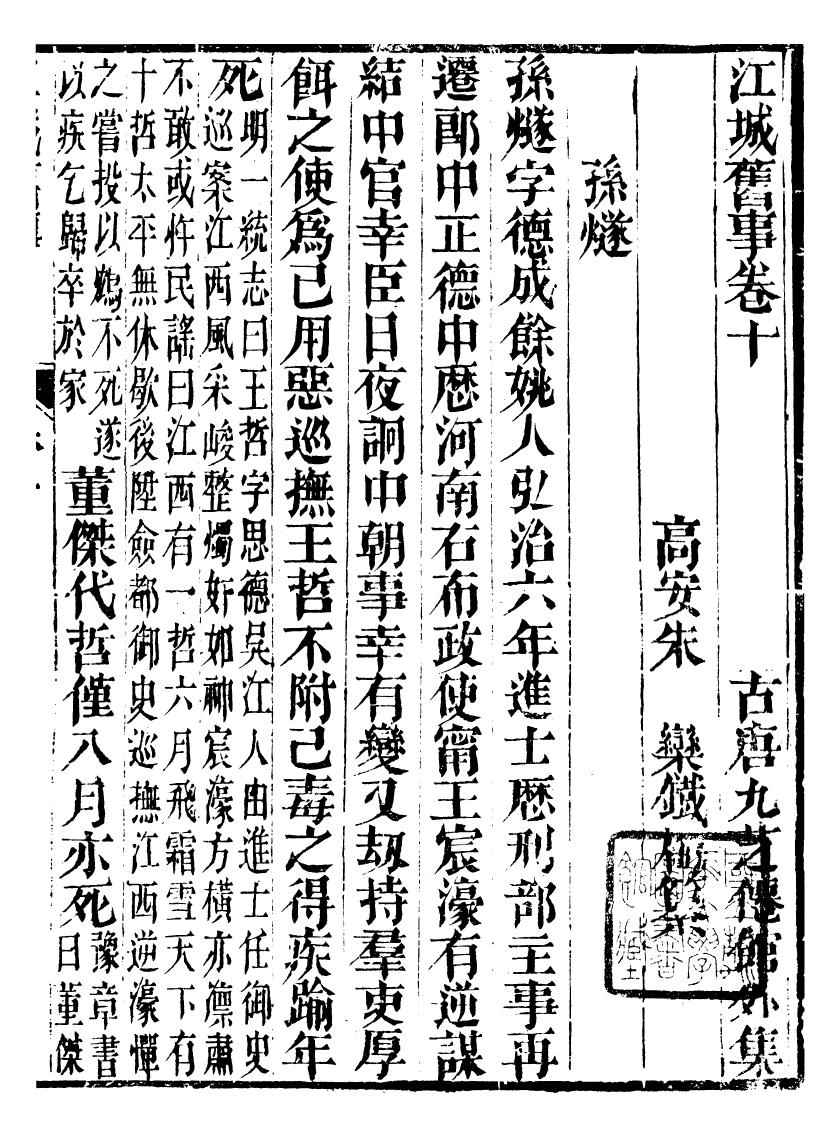 江城舊事卷十　古唐九芝僊館外集
高安朱　欒鐵
孫燧
孫燧字德成餘姚人弘治六年進士厯刑部主事再
遷郎中正德中厯河南右布政使甯王宸濠有逆謀
結中官幸臣日夜詗中朝事幸有變又劫持羣吏厚
餌之使爲己用惡巡撫王哲不附己毒之得疾踰年
死
明一統志曰王哲字思德吳江人由進士任御史
巡案江西風采峻整燭奸如神宸濠方橫亦凛肅
不敢或忤民謠曰江西有一哲六月飛霜雪天下有
十哲太平無休歇後陞僉都御史巡撫江西逆濠憚
之嘗投以鴆不死遂
以疾乞歸卒於家
董傑代哲僅八月亦死
豫章書
曰董傑